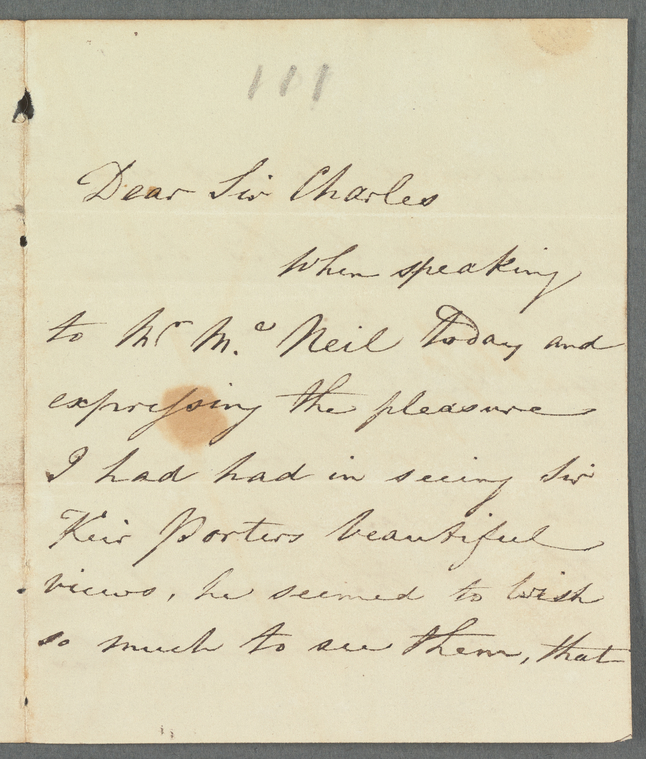 111
Dear Sir Charles
When speaking
to Mr Mc. Neil today and
expressing the pleasure
I had had in seeing Sir
Keir Porters beautiful
views, he seemed to wish
so much to see them, that